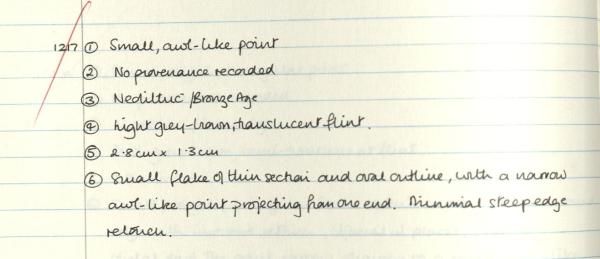 1217 ① Small, awl-like point
② No provenance recorded
③ Neolithic / Bronze Age
④ Light grey-brown, translucent flint.
⑤ 2.8cm x 1.3cm
⑥ Small flake of thin section and oval outline, with a narrow
awl-like point projecting from one end. Minimal steep edge
retouch.